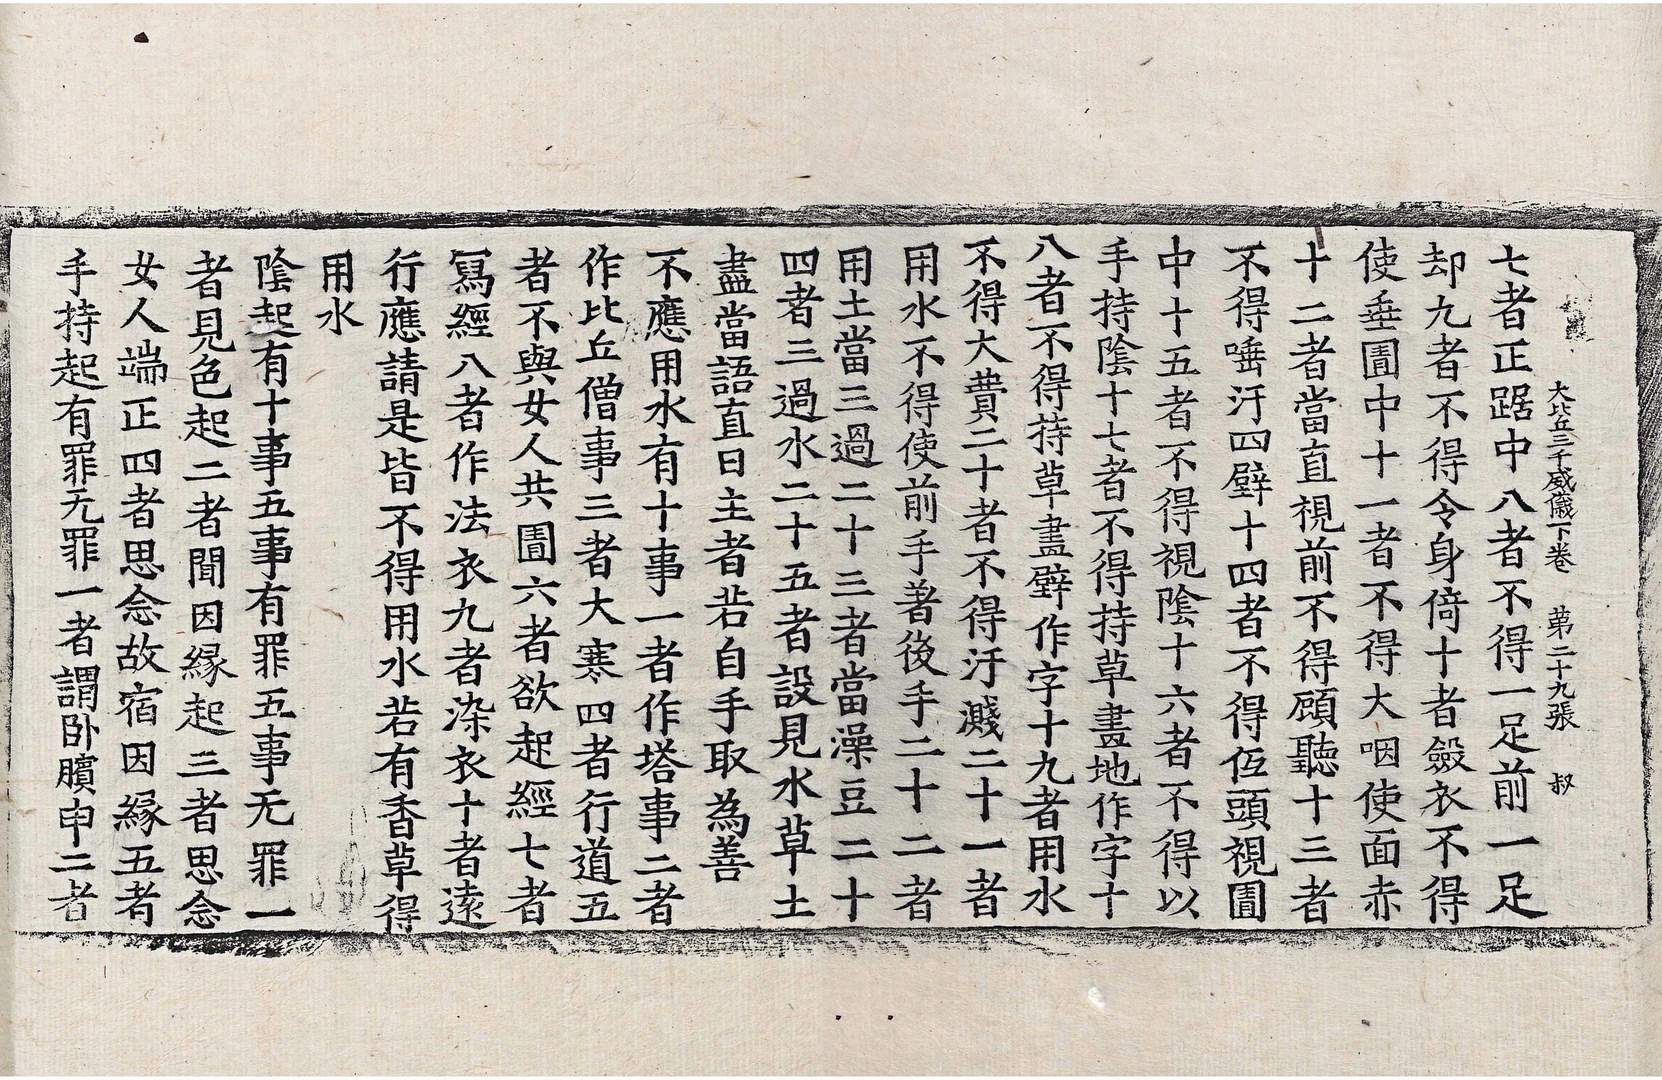 大比丘三千威儀下卷 第二十九張 叔
七者正踞中八者不得一足前一足
却九者不得令身倚十者斂衣不得
使垂圊中十一者不得大咽使面赤
十二者當直視前不得顧聽十三者
不得唾汙四壁十四者不得伍頭視圊
中十五者不得視陰十六者不得以
手持陰十七者不得持草畫地作字十
八者不得持草畫壁作字十九者用水
不得大費二十者不得汙濺二十一者
用水不得使前手著後手二十二者
用土當三過二十三者當澡豆二十
四者三過水二十五者設見水草土
盡當語直日主者若自手取為善
不應用水有十事一者作塔事二者
作比丘僧事三者大寒四者行道五
者不與女人共圊六者欲起經七者
寫經八者作法衣九者染衣十者遠
行應請是皆不得用水若有香草得
用水
陰起有十事五事有罪五事无罪一
者見色起二者聞因緣起三者思念
女人端正四者思念故宿因緣五者
手持起有罪无罪一者謂卧臏申二者